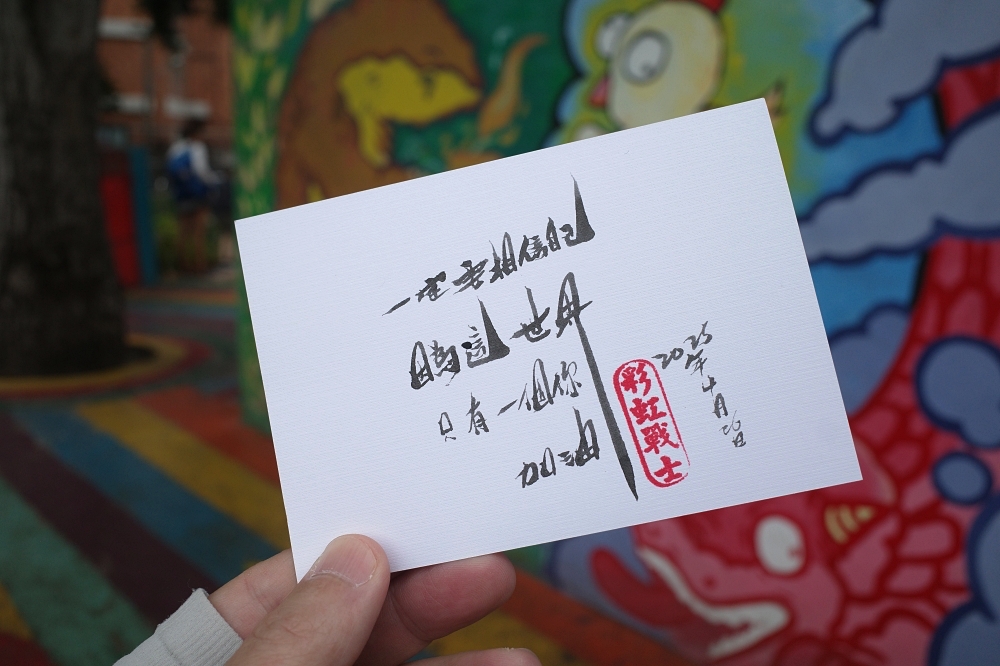 一定要相信自己
因為這世界
只有一個你
加油
彩虹戰士
2025年十月26日